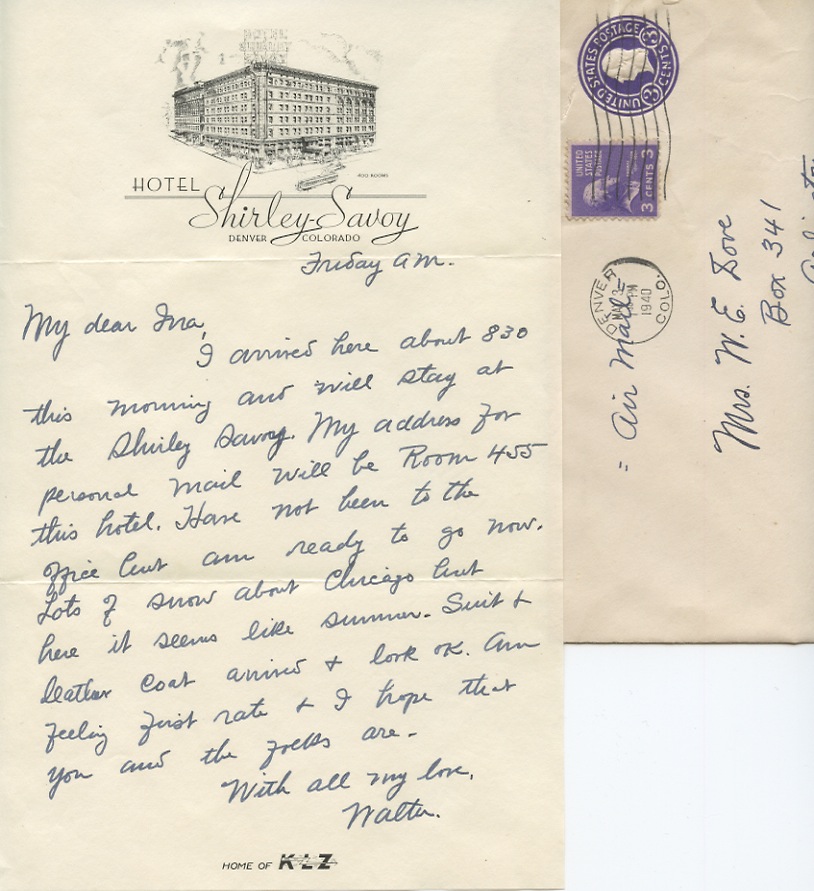 400 ROOMS
HOTEL
Shirley-Savoy
DENVER COLORADO
Friday AM.
My dear Ina,
I arrived here about 830
this morning and will stay at
the Shirley Savoy. My address for
personal mail will be Room 455
this hotel. Have not been to the
office but am ready to go now.
Lots of snow about Chicago but
here it seems like summer. Suit &
leather coat arrived & look OK. Am
feeling first rate & I hope that
you and the folks are.
With all my love,
Walter.
HOME OF KLZ
UNITED STATES POSTAGE
3 CENTS 3
UNITED
STATES
POSTAGE
3 CENTS 3
DENVER
MAY 3
PM
1940
COLO.
= Air Mail =
Mrs. W. E. Dove
Box 341